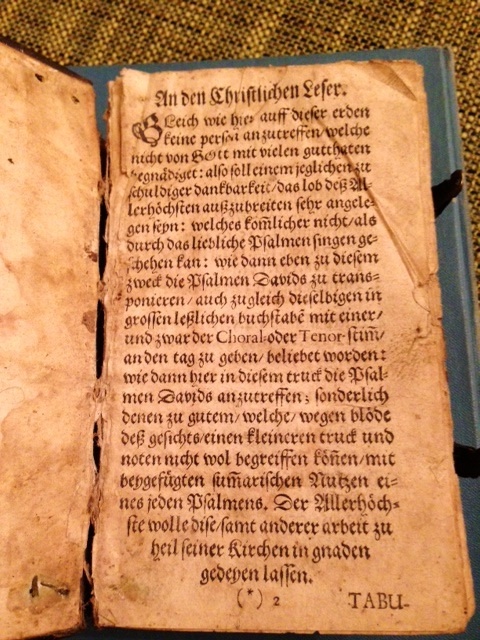 An den Christlichen Leser.
GLeich wie hier auff dieser erden
keine persõ anzutreffen/welche
nicht von GOtt mit vielen gutthaten
begnädiget: also soll einem jeglichen zu
schuldiger danckbarkeit/das lob deß Al-
lerhöchsten außzubreiten sehr angele-
gen seyn: welches kom̃licher nicht/als
durch das liebliche Psalmen singen ge-
schehen kan: wie dann eben zu diesem
zweck die Psalmen Davids zu trans-
ponieren/auch zugleich dieselbigen in
grossen leßlichen buchstabẽ mit einer/
und zwar der Choral-oder Tenor-stim̃/
an den tag zu geben/beliebet worden:
wie dann hier in diesem truck die Psal-
men Davids anzutreffen; sonderlich
denen zu gutem/welche/wegen blöde
deß gesichts/einen kleineren truck und
noten nicht wol begreiffen kön̄en/mit
beygefügten sum̃arischen Nutzen ei-
nes jeden Psalmens. Der Allerhöch-
ste wolle dise/samt anderer arbeit zu
heil seiner Kirchen in gnaden
gedeyen lassen.
(*) 2 TABU-